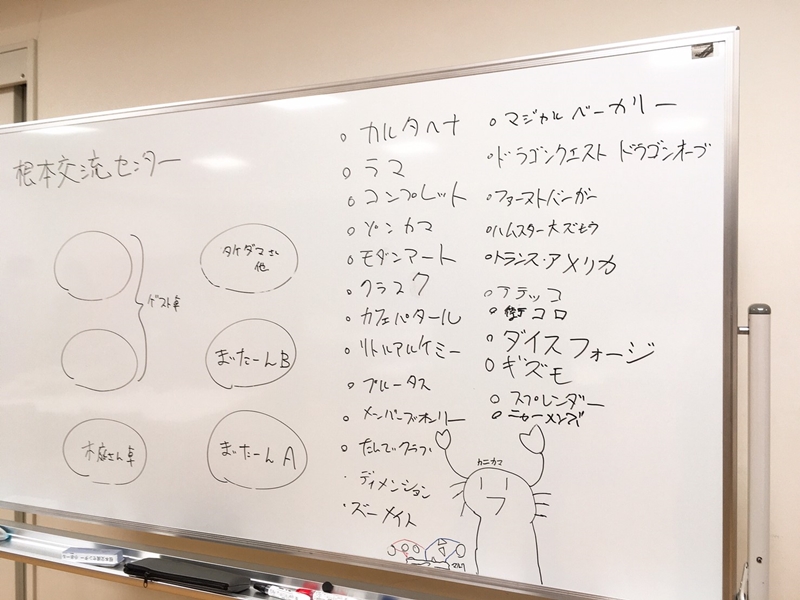 根本交流センター
ゲスト卓
タケダマさん
他
まぃたーんB
木庭さん卓
まぃたーんA
○ カルタヘナ
○ ラマ
○ コンプレット
○ ゾンカマ
○ モダンアート
○ クラスク
○ カフェバタール
○ リトルアルケミー
○ ブルータス
○ メンバーズオンリー
・ディメンション
・ズーメイト
○ マジカル ベーカリー
○ ドラゴンクエスト ドラゴンオーブ
○ ファーストバンガー
○ ハムスターオズモウ
○ トランス・アメリカ
○ アテッコ
コロ
○ ダイスフォージ
○ ギズモ
○ スプレンダー
○ ニャーメンズ
カニカマ